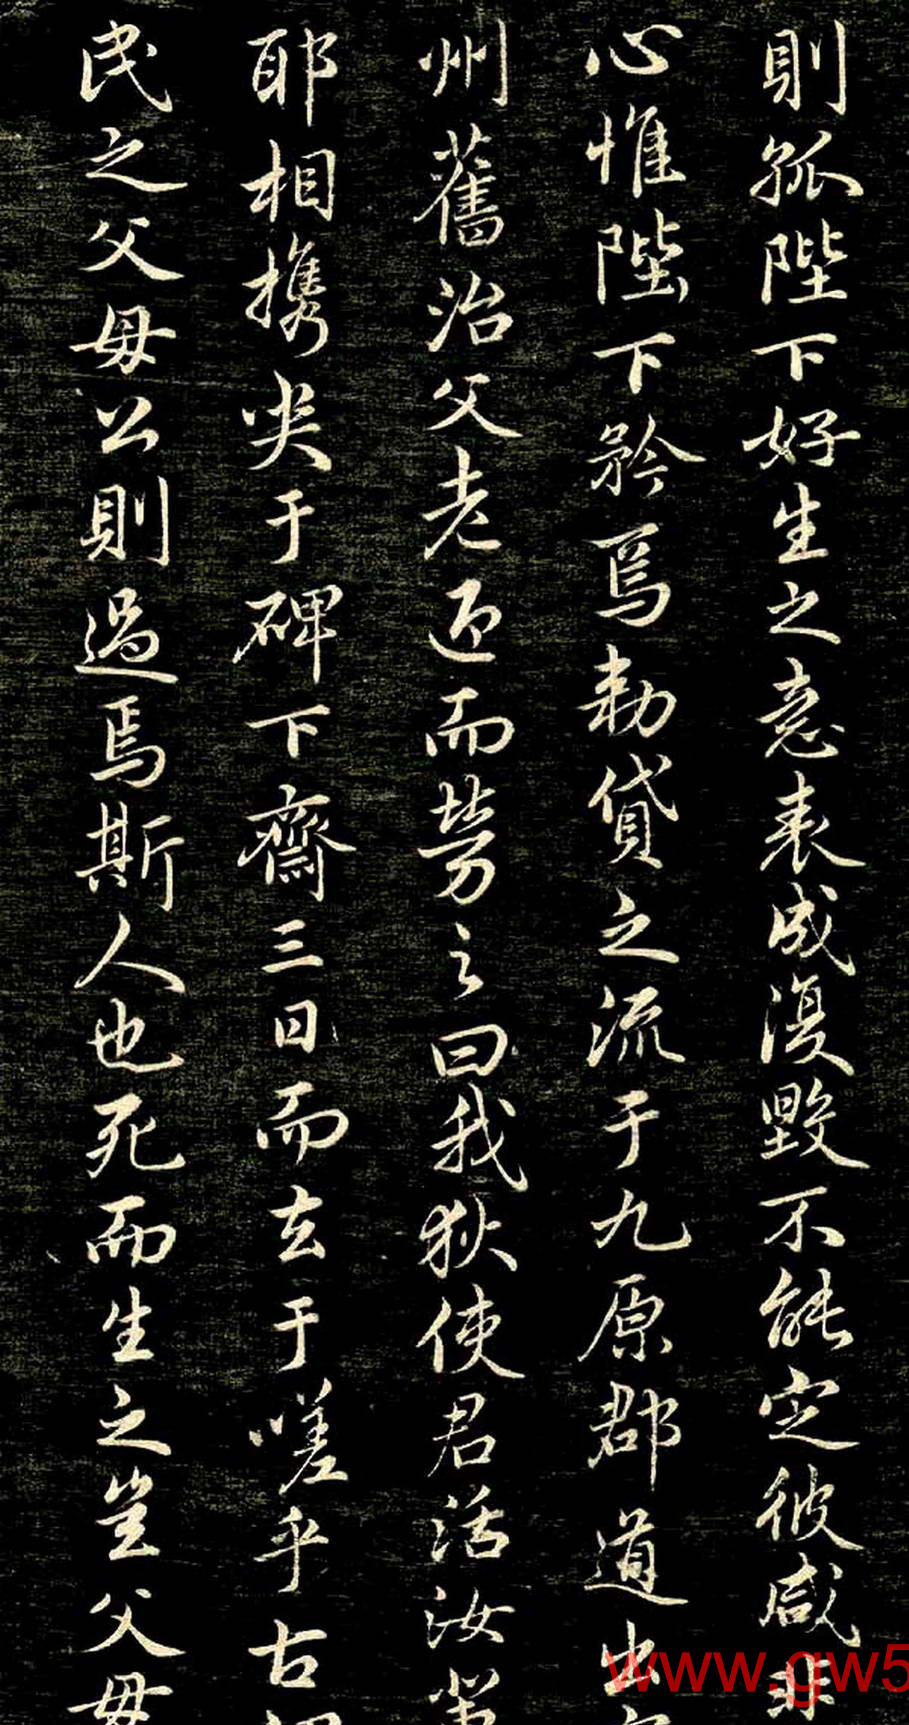 則孤陛下好生之意表成復毀不能定彼咸非
心惟陛下矜焉勑貸之流于九原郡道出
州舊治父老迎而勞之曰我狄使君活汝輩
耶相携哭于碑下齋三日而去于嗟乎古
民之父母公則過焉斯人也死而生之豈父母
www.gw5